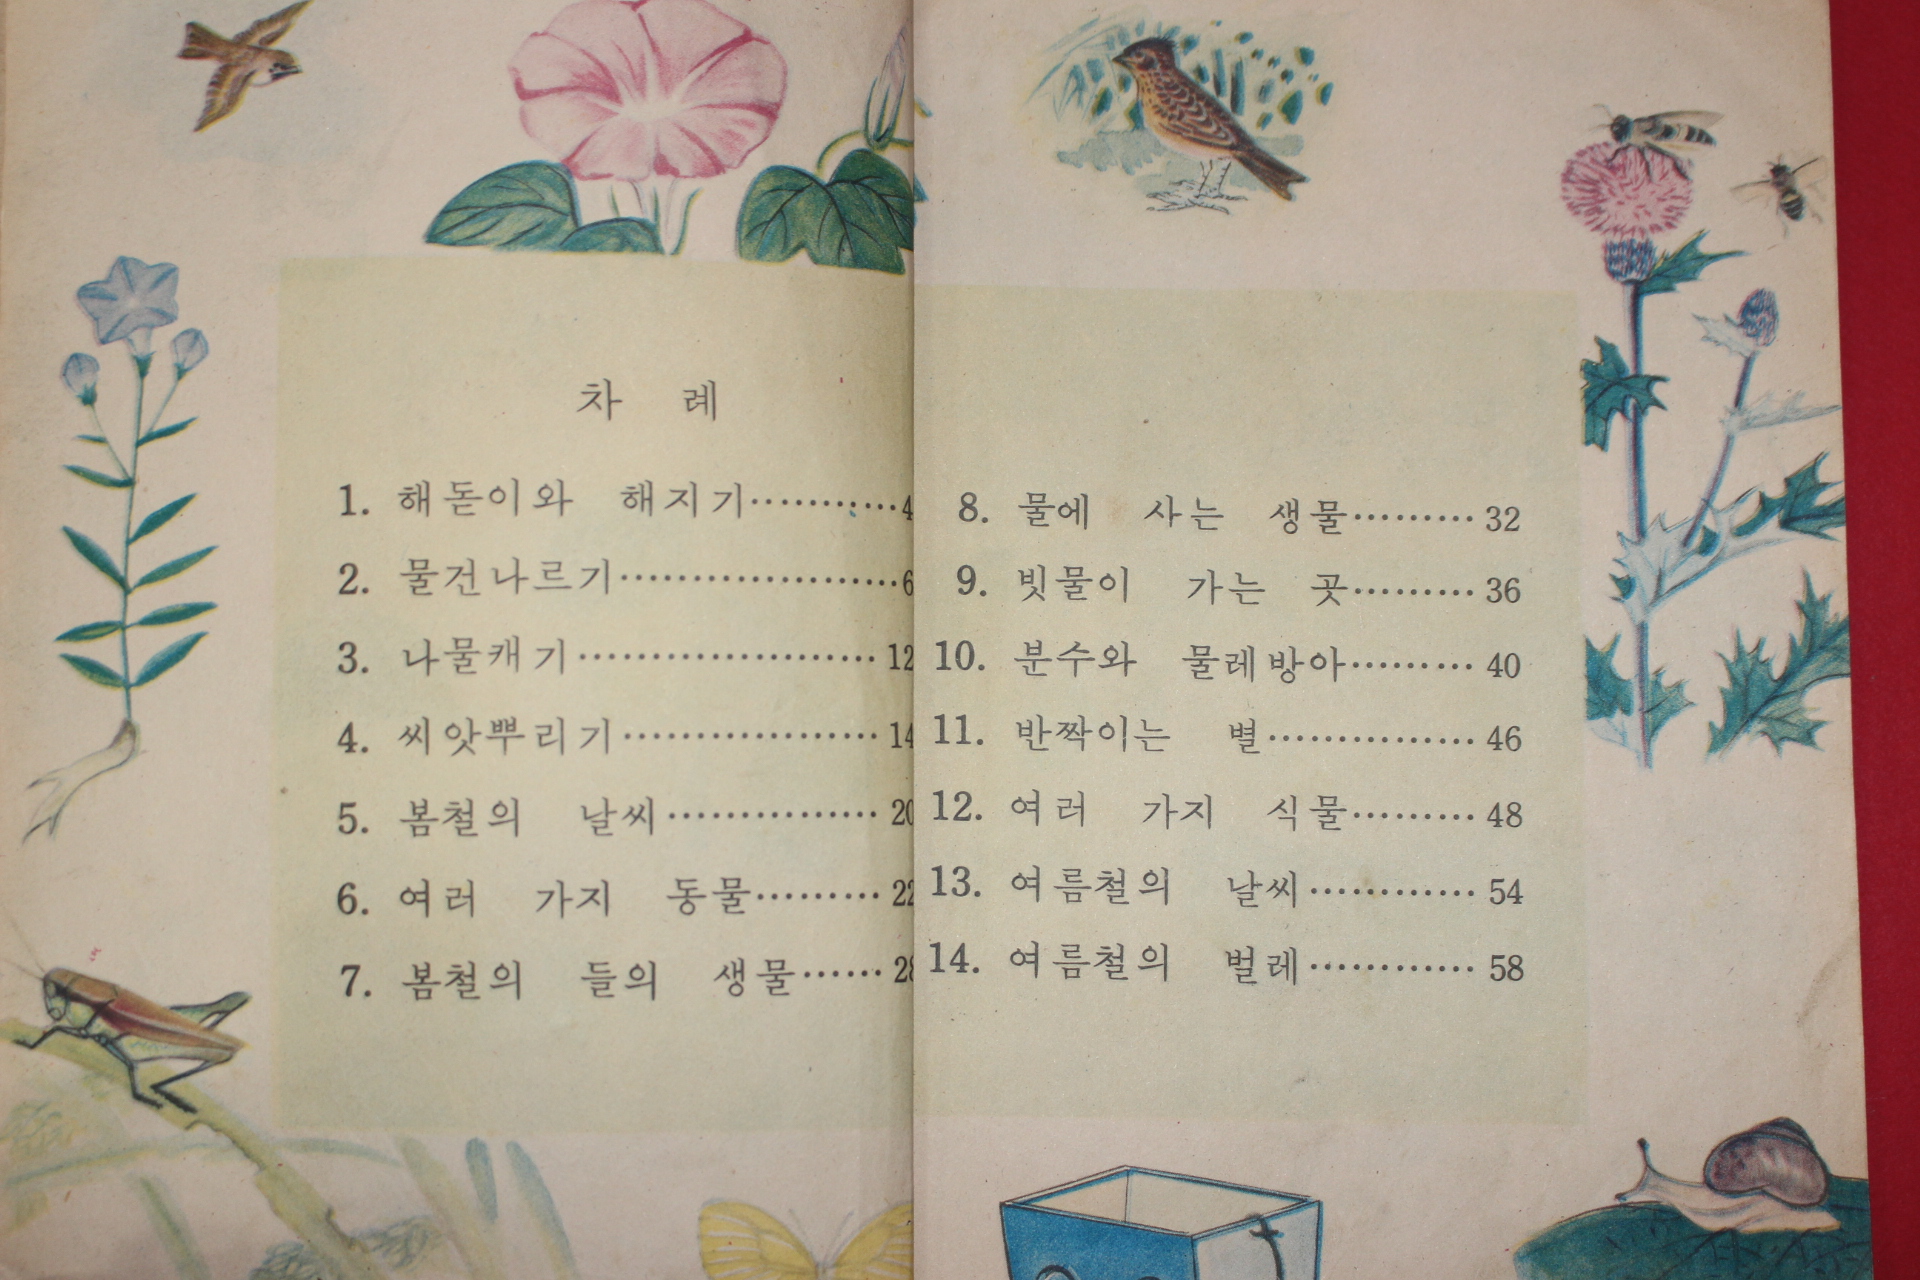 차 례
1. 해돋이와 해지기··········4
2. 물건나르기····················6
3. 나물캐기····················· 12
4. 씨앗뿌리기·················· 14
5. 봄철의 날씨··············· 20
6. 여러 가지 동물········· 22
7. 봄철의 들의 생물······ 28
8. 물에 사는 생물········· 32
9. 빗물이 가는 곳········· 36
10. 분수와 물레방아········· 40
11. 반짝이는 별··············· 46
12. 여러 가지 식물········· 48
13. 여름철의 날씨············ 54
14. 여름철의 벌레············ 58